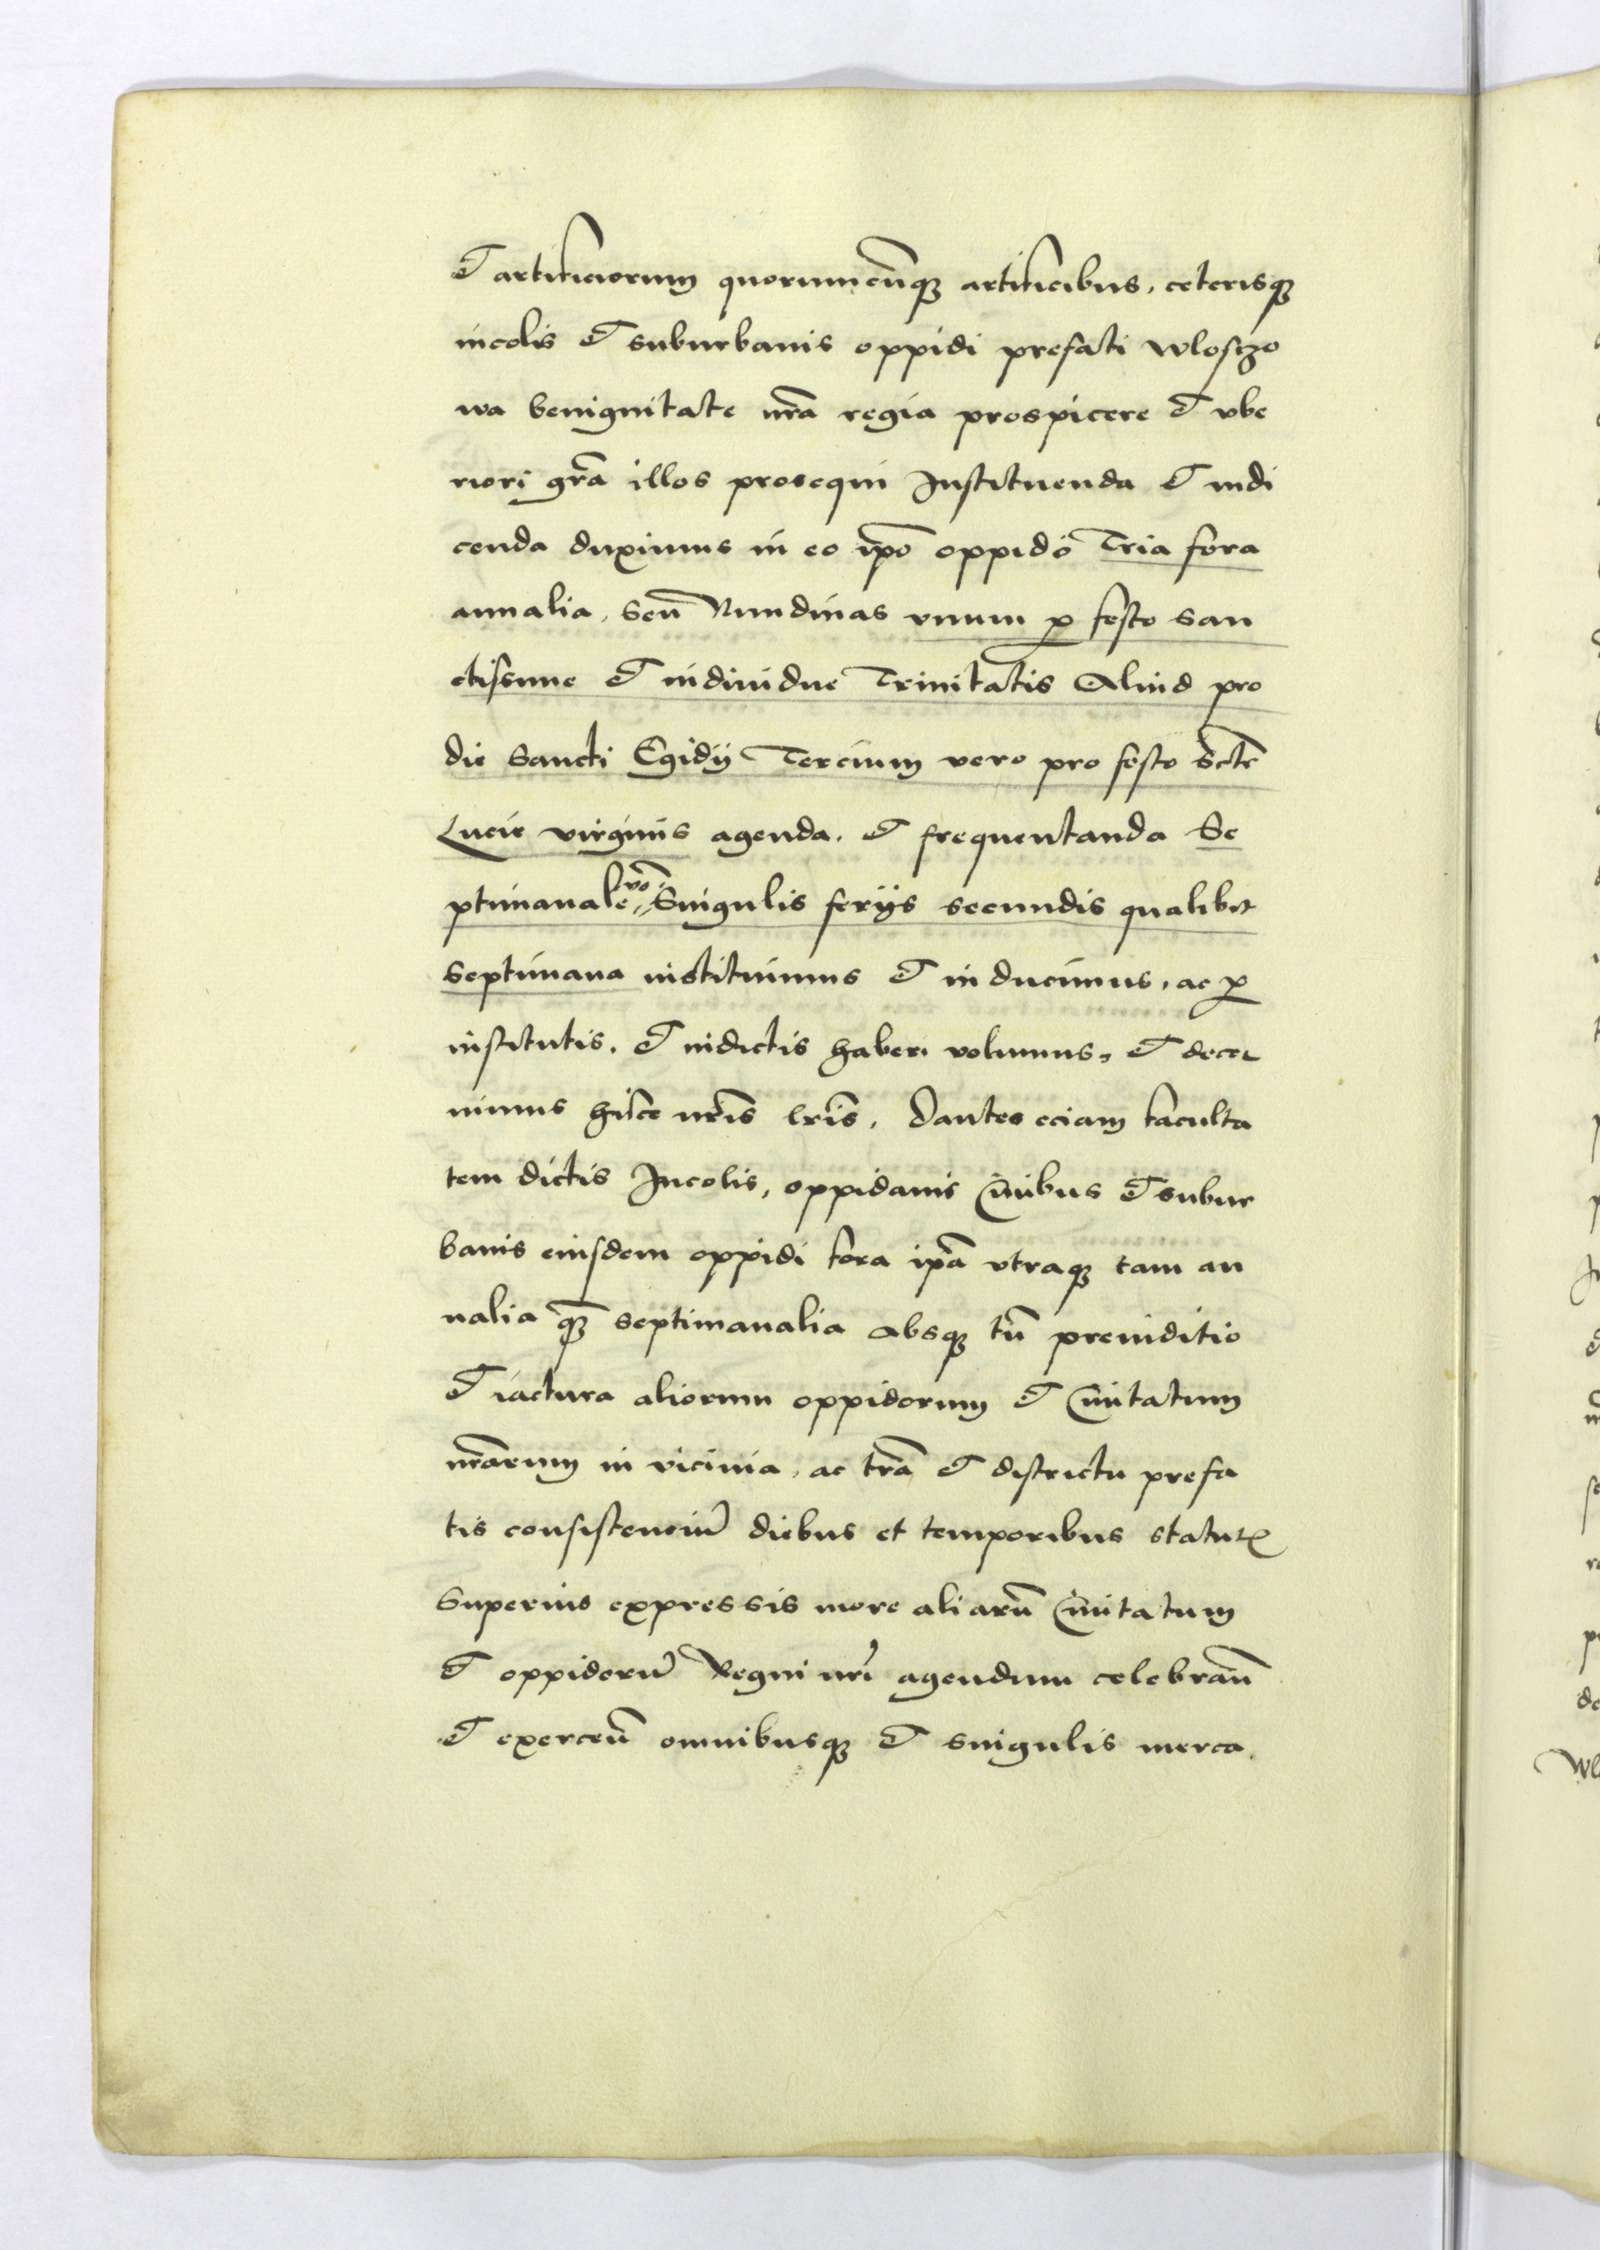 Et artificiorum quorumcunq artificibus, ceterisq
incolis et suburbanis oppidi prefati Wlosczo
wa benignitate nra regia prospicere et vbe
riori gra illos prosequi Instituenda et indi
cenda duximus in eo ipo oppido Tria fora
annalia, seu Nundinas vnum p festo san
ctissime et indiuidue Trinitatis Aliud pro
die Sancti Egidij Tercium vero pro festo Scte
Lucie virginis agenda. et frequentanda Se
ptimanale vo Singulis ferijs secundis qualibet
Septimana instituimus et inducimus, ac p
institutis, et indictis haberi volumus, et decer
nimus hisce nris lris, Dantes eciam faculta
tem dictis Incolis, oppidanis Ciuibus et subur
banis eiusdem oppidi fora ipa vtraq tam an
nalia q septimanalia absq tn preiuditio
Et iactura aliorum oppidorum et Ciuitatum
nrarum in vicinia, ac tra et districtu prefa
tis consistenciu diebus et temporibus statut
Superius expressis more aliaru Ciuitatum
et oppidoru Regni nri agendum celebran
Et exercen omnibusq et singulis merca